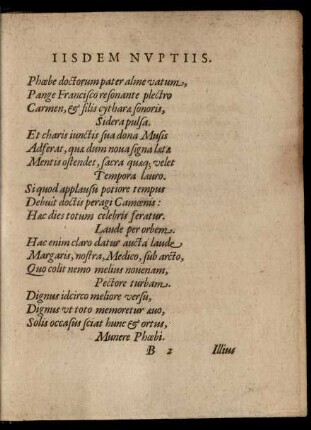 IISDEM NVPTIIS.
Phœbe doctorum pater alme vatum,
Pange Francisco resonante plectro
Carmen, & filis cytharæ sonoris,
Sidera pulsa.
Et charis iunctis sua dona Musis
Adferat, quæ dum noua signa lætæ
Mentis ostendet, sacra quæq; velet
Tempora lauro.
Si quod applausu potiore tempus
Debuit doctis peragi Camœnis:
Hac dies totum celebris feratur.
Laude per orbem.
Hac enim claro datur aucta laude
Margaris, nostra, Medico, sub arcto,
Quo colit nemo melius nouenam,
Pectore turbam.
Dignus idcirco meliore versu,
Dignus vt toto memoretur æuo,
Solis occasus sciat hunc & ortus,
Munere Phœbi.
B 2 Illius